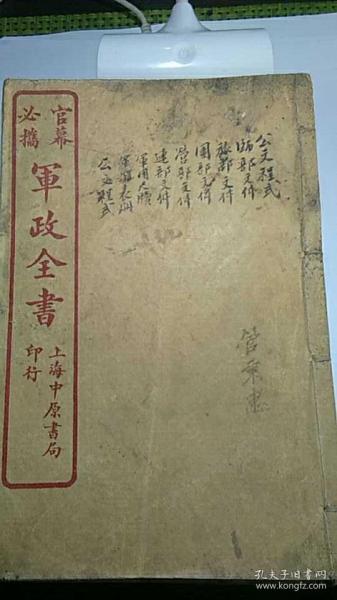 官幕
必攜
軍政全書
上海中原書局
印行
公文程式
師部文件
旅部文件
團部文件
營部文件
連部文件
軍用尺牘
軍用表冊
公文程式
孔夫子旧书网